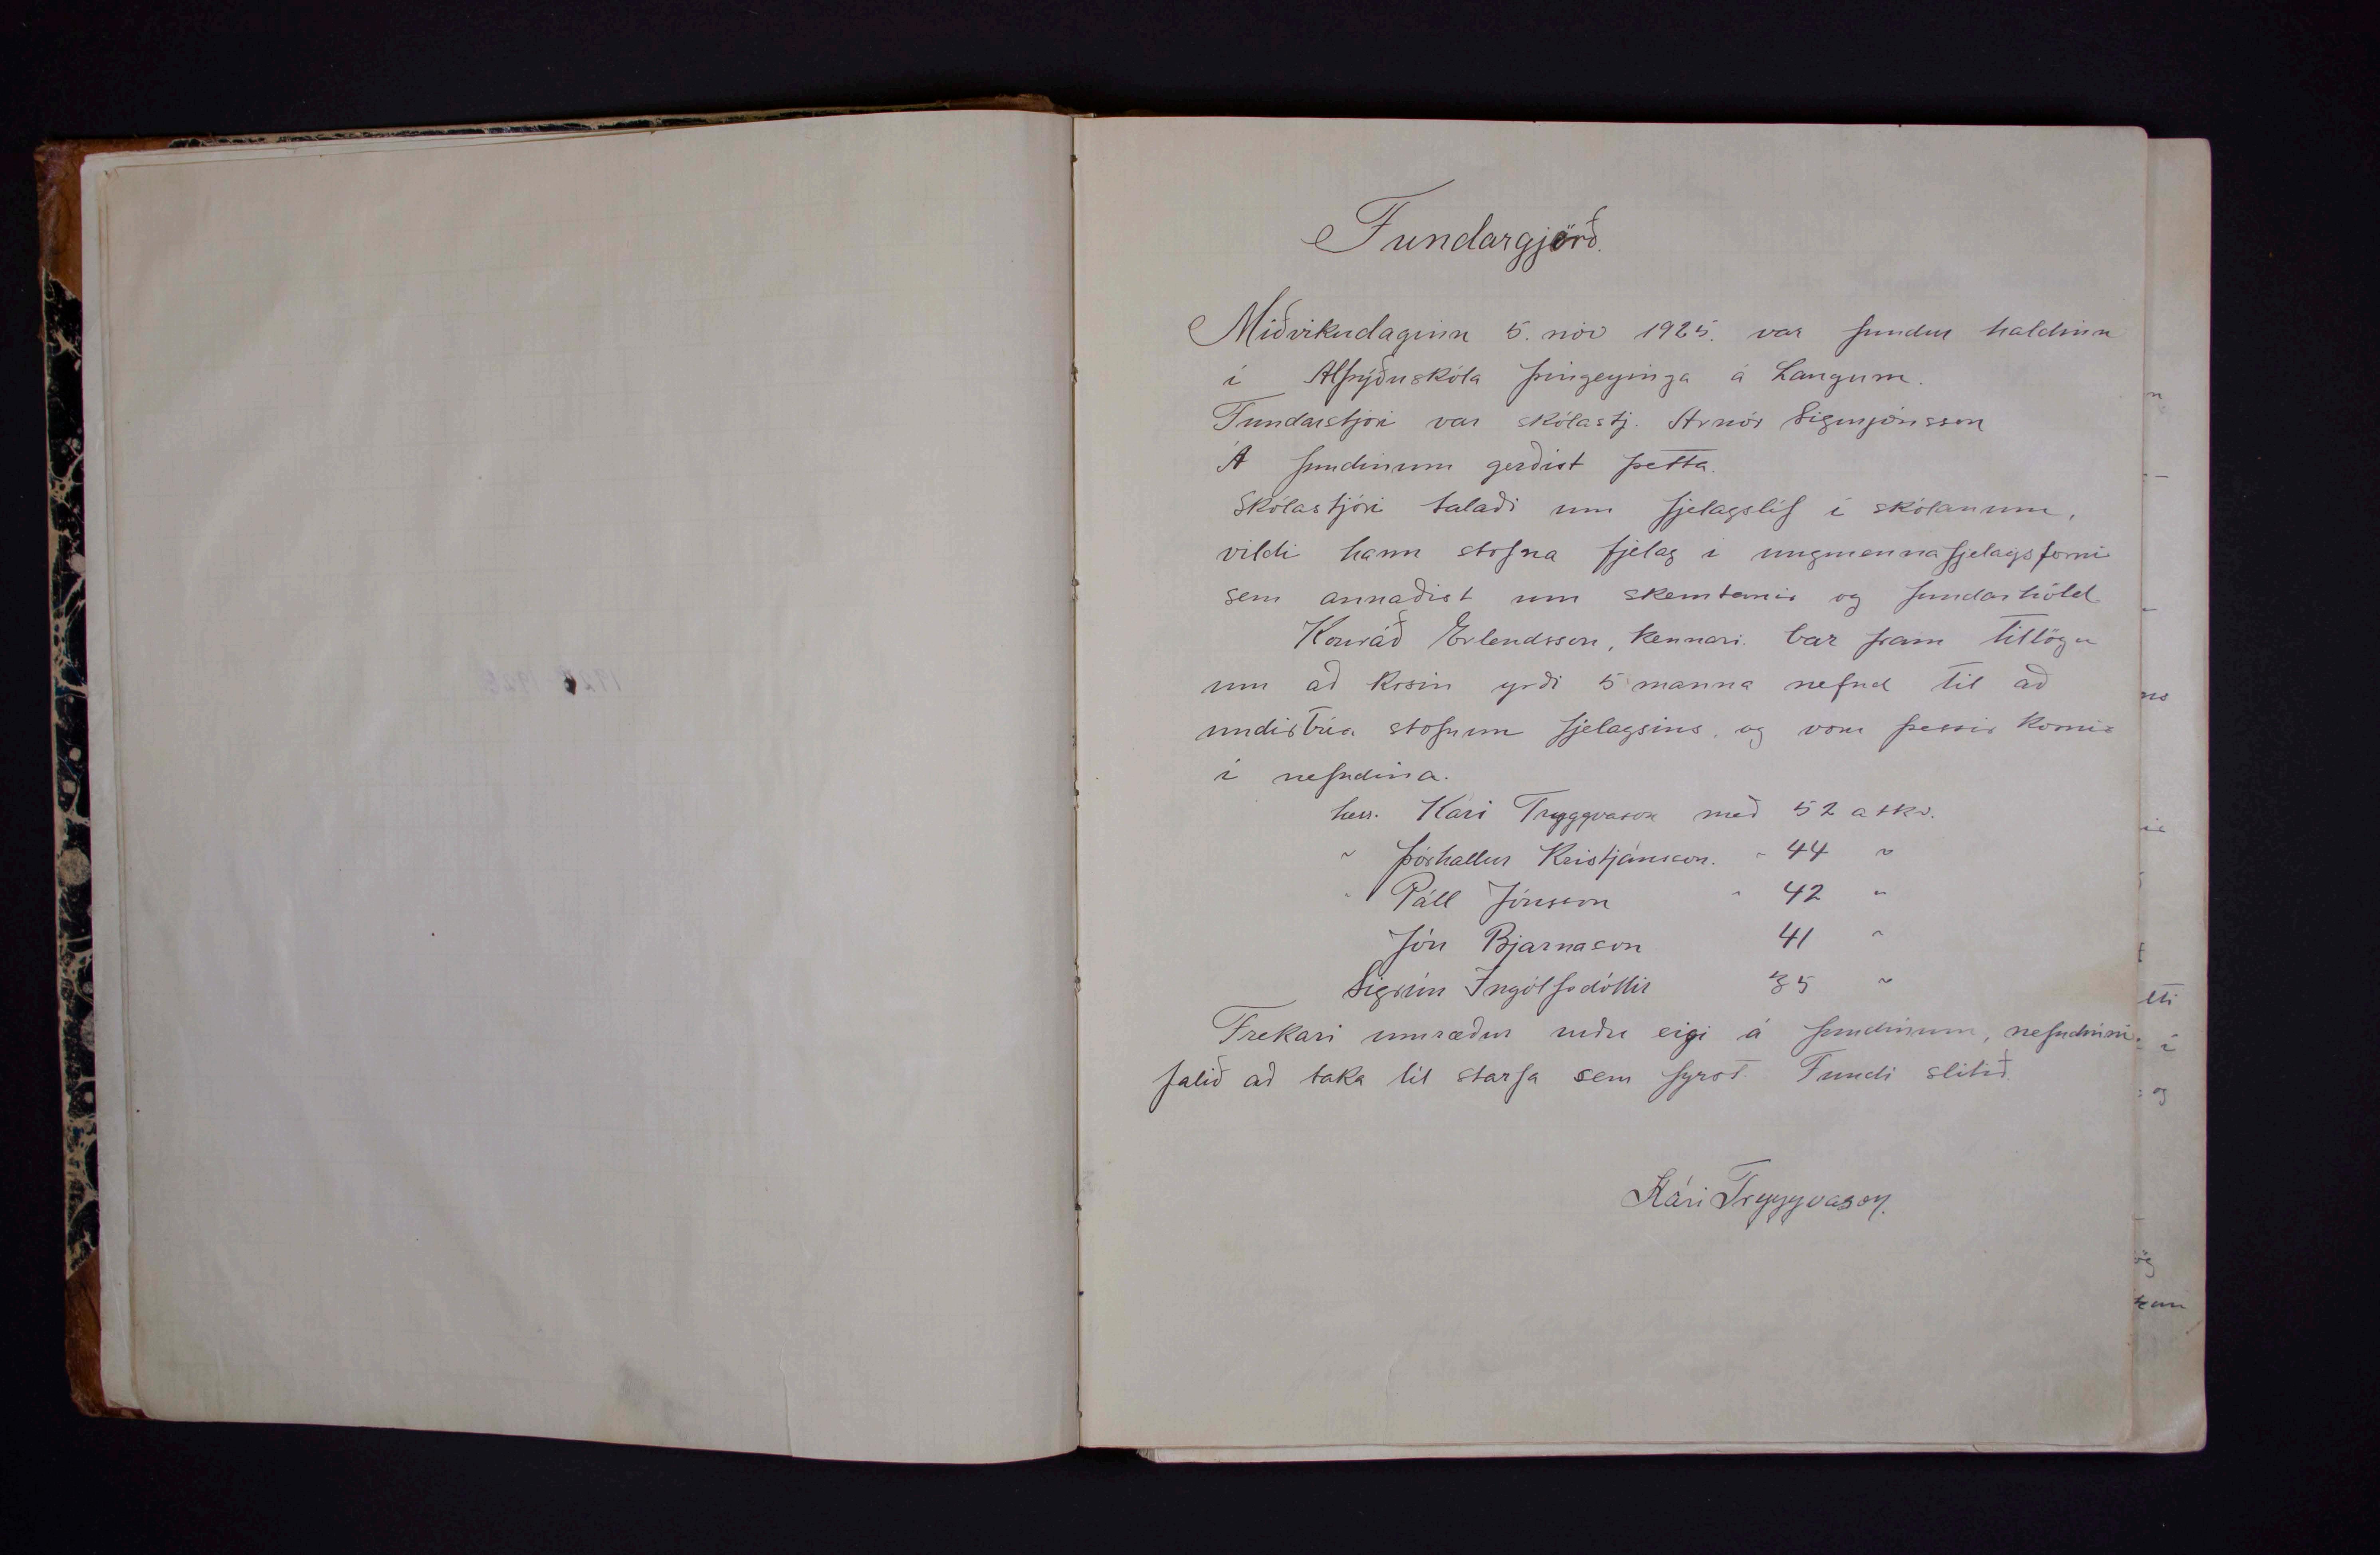 Fundargjörð.
Miðvikudaginn 5. nóv 1925. var fundur haldinn
í Alþýðuskóla þingeyinga á Laugum.
Fundarstjóri var skólastj. Arnór Sigurjónsson
Á fundinum gerðist þetta.
Skólastjóri talaði um fjelagslíf í skólanum,
vildi hann stofna fjelag í ungmennafjelagsformi
sem annaðist um skemtanir og fundarhöld
Konráð Erlendsson, kennari bar fram tillögu
um að kosin yrði 5 manna nefnd til að
undirbúa stofnun fjelagsins, og voru þessir kosnir
í nefndina.
herr. Kári Tryggvason með 52 atkv.
" Þórhallur Kristjánsson. " 44 "
" Páll Jónsson " 42 "
Jón Bjarnason 41 "
Sigrún Ingólfsdóttir 35 "
Frekari umræður urðu eigi á fundinum, nefndinni
falið að taka til starfa sem fyrst. Fundi slitið.
Kári Tryggvason.